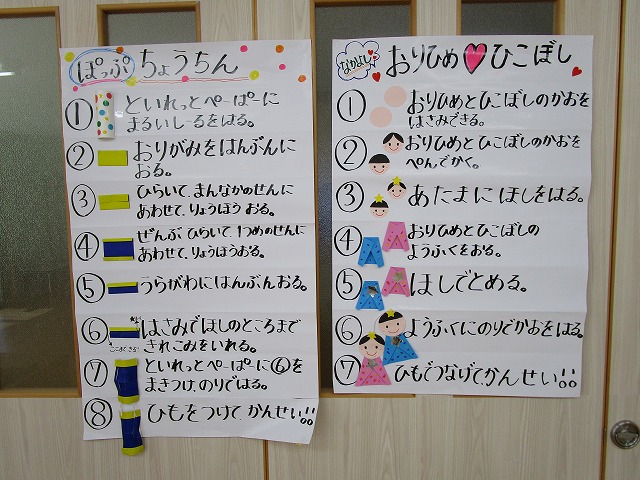 ぽっぷ ちょうちん
① といれっとぺーぱーに
まるいしーるをはる。
② おりがみをはんぶんに
おる。
③ ひらいて、まんなかのせんに
あわせて、りょうほう おる。
④ ぜんぶ ひらいて、1つめのせんに
あわせて、りょうほうおる。
⑤ うらがわにはんぶんおる。
⑥ はさみでほしのところまで
きれこみをいれる。
⑦ といれっとぺーぱーに⑥を
まきつけ、のりではる。
⑧ ひもをつけて かんせい!!
なかよし おりひめ♥ひこぼし
① おりひめとひこぼしのかおを
はさみできる。
② おりひめとひこぼしのかおを
ぺんでかく。
③ あたまに ほしをはる。
④ おりひめとひこぼしの
ようふくをおる。
⑤ ほしでとめる。
⑥ ようふくにのりでかおをはる。
⑦ ひもでつなげてかんせい!!